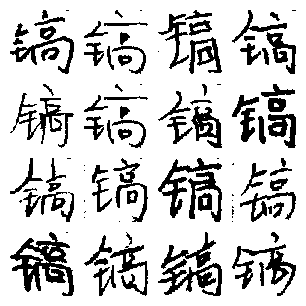 镐 镐 镐 镐
镐 镐 镐 镐
镐 镐 镐 镐
镐 镐 镐 镐